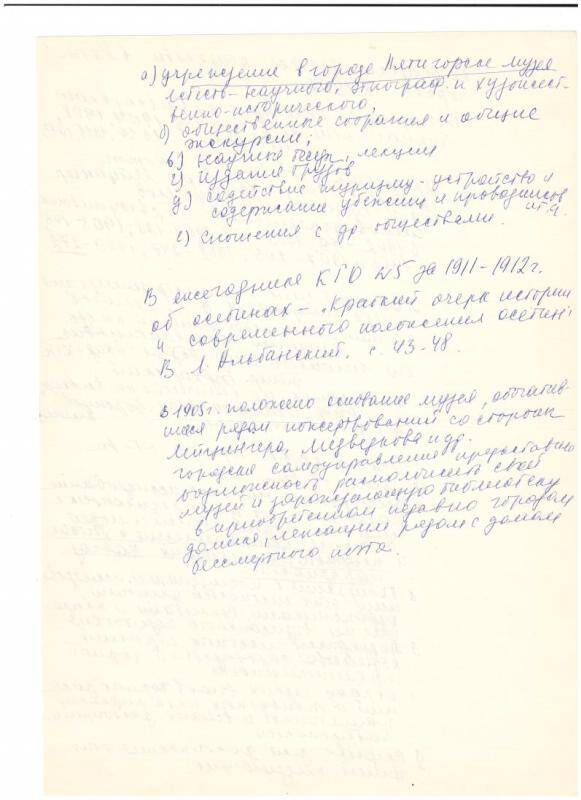 а) учреждение в городе Пятигорске музея
естеств-научного, этнограф. и художест-
венно-исторического,
б) общественные собрания и общие
экскурсии;
в) научные беседы, лекции
г) издание трудов
д) содействие туризму - устройство и
содержание убежищ и проводников
и т.д.
е) сношения с др. обществами.
В ежегоднике КГО №5 за 1911-1912 г.
об осетинах - "Краткий очерк истории
и современного положения осетин"
В. Л. Альбанский. с. 43-48.
В 1905г. положено основание музея, обогатив-
шееся рядом пожертвований со стороны
Лейцингера, Медведкова и др.
городское самоуправление предоставило
возможность расположить свой
музей и зарождающую библиотеку
в приобретенном недавно городом
домике, лежащем рядом с домом
бессмертного поэта.